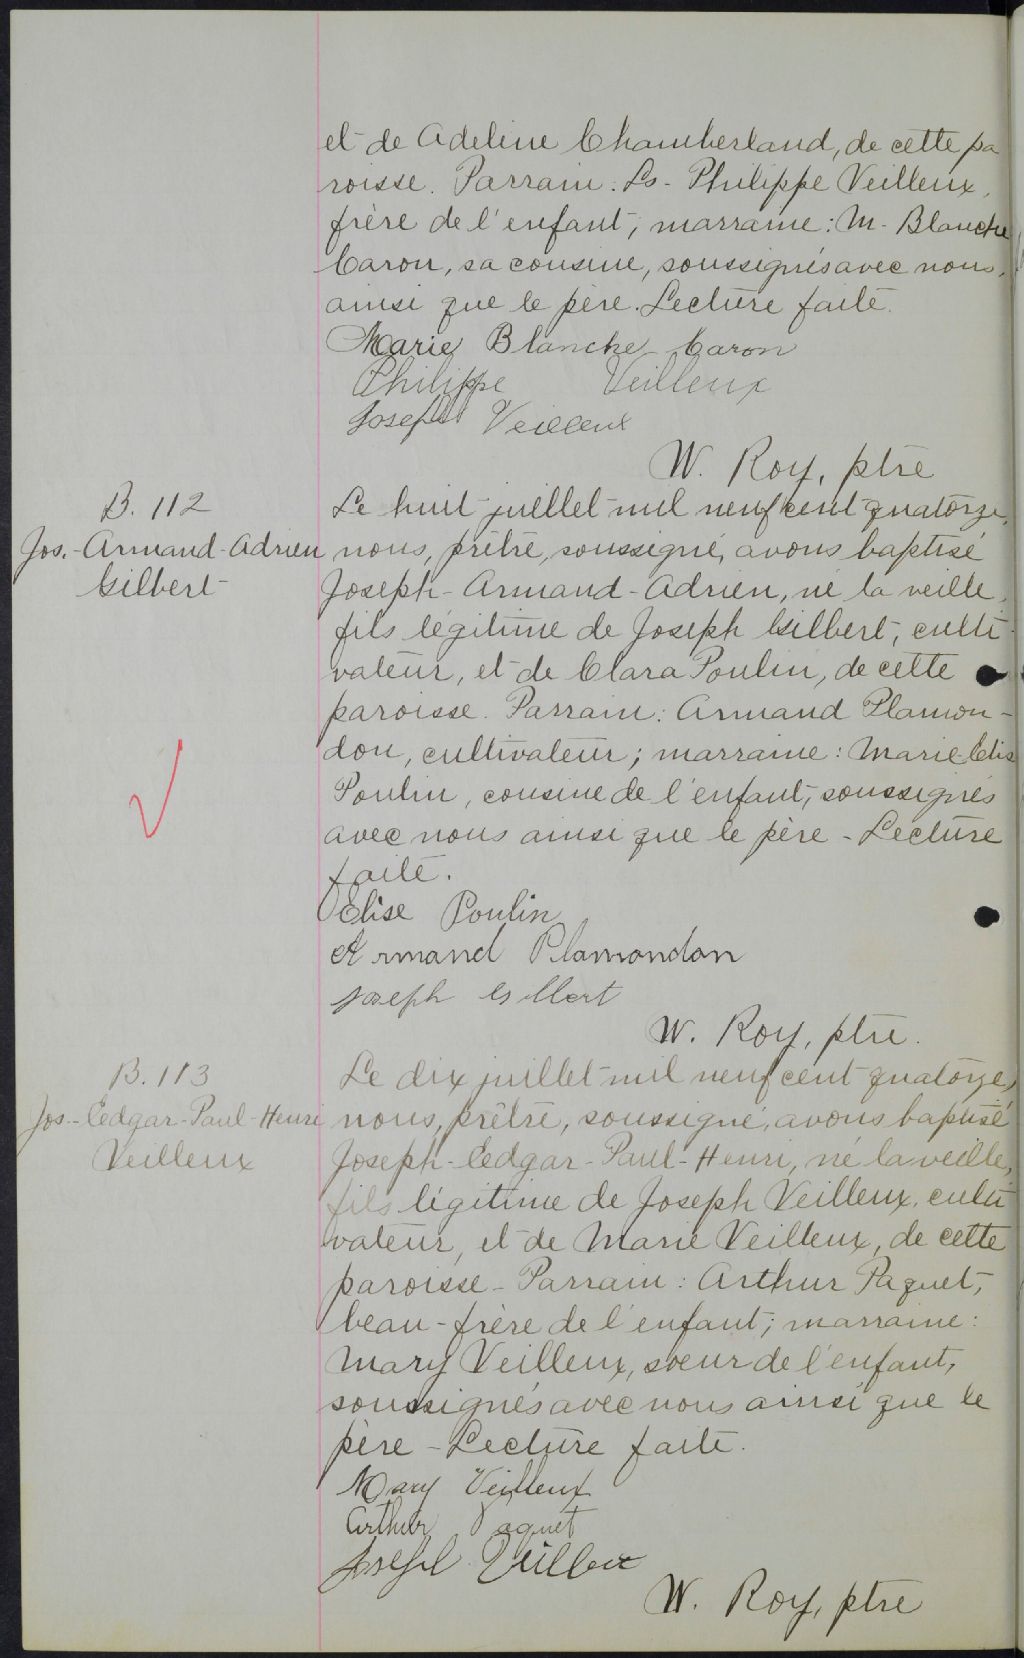 et de Adeline Chamberland, de cette pa
roisse. Parrain: Ls- Philippe Veilleux,
frère de l'enfant; marraine: M. Blanche
Caron, sa cousine, soussignés avec nous,
ainsi que le père. Lecture faite.
Marie Blanche Caron
Philippe Veilleux
Joseph Veilleux
W. Roy, ptre
B. 112
Jos.-Armand-Adrien
Gilbert
Le huit juillet mil neuf cent quatorze,
nous, prêtre, soussigné, avons baptisé
Joseph-Armand-Adrien, né la veille,
fils légitime de Joseph Gilbert, culti-
vateur, et de Clara Poulin, de cette
paroisse. Parrain: Armand Plamon-
don, cultivateur; marraine: Marie-Elis
Poulin, cousine de l'enfant, soussignés
avec nous ainsi que le père - Lecture
faite.
Elise Poulin
Armand Plamondon
Joseph Gilbert
W. Roy, ptre.
B. 113
Jos.-Edgar-Paul-Henri
Veilleux
Le dix juillet mil neuf cent quatorze,
nous, prêtre, soussigné, avons baptisé
Joseph-Edgar-Paul-Henri, né la veille,
fils légitime de Joseph Veilleux, culti
vateur, et de Marie Veilleux, de cette
paroisse - Parrain: Arthur Paquet,
beau-frère de l'enfant; marraine:
Mary Veilleux, soeur de l'enfant,
soussignés avec nous ainsi que le
père - Lecture faite.
Mary Veilleux
Arthur Paquet
Joseph Veilleux
W. Roy, ptre